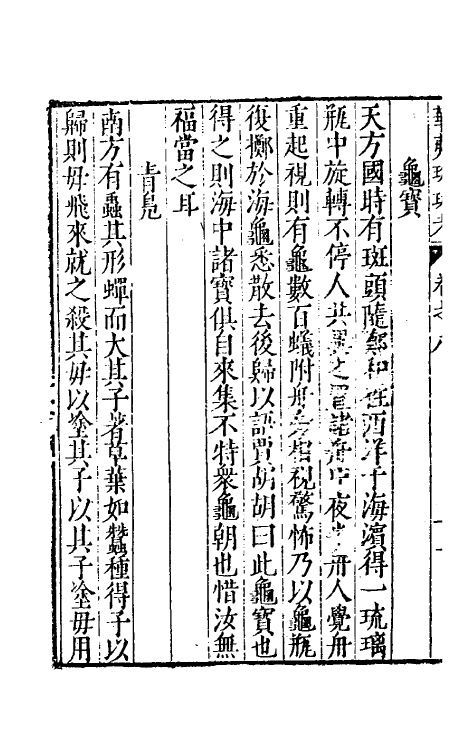 華夷珍玩考 卷之八
龜寶
天方國時有斑頭隨鄭和往西洋于海濱得一琉璃
瓶中旋轉不停人共異之置諸舟中夜半舟人覺舟
重起視則有龜數百蟻附舟旁相視驚怖乃以龜瓶
復擲於海龜悉散去後歸以語賈胡胡曰此龜寶也
得之則海中諸寶俱自來集不特衆龜朝也惜汝無
福當之耳
青鳧
南方有蟲其形蟬而大其子著草葉如蠶種得子以
歸則毋飛來就之殺其毋以塗其子以其子塗毋用